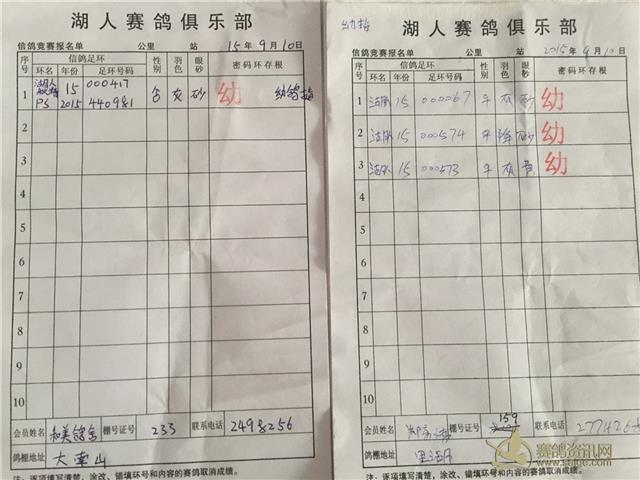 湖人赛鸽俱乐部
信鸽竞赛报名单 公里 站 15年9月10日
序号 信鸽足环 性别 羽色 眼砂 密码环存根
环名 年份 足环号码
1 15 000417 灰 砂 幼
PS 2015 440981
2
3
4
5
6
7
8
9
10
会员姓名 和美鸽舍 棚号证号 233 联系电话 2498256
鸽棚地址 大牵山
注:逐项填写清楚,涂改、错填环号和内容的赛鸽取消成绩。
湖人赛鸽俱乐部
信鸽竞赛报名单 公里 站 2015年9月10日
序号 信鸽足环 性别 羽色 眼砂 密码环存根
环名 年份 足环号码
1 湖人 15 000067 平 灰 砂 幼
2 湖人 15 000574 平 砂 幼
3 湖人 15 000573 平 灰 黄 幼
4
5
6
7
8
9
10
会员姓名 棚号证号 159 联系电话
鸽棚地址 里湖
注:逐项填写清楚,涂改、错填环号和内容的赛鸽取消成绩。
赛鸽资讯网